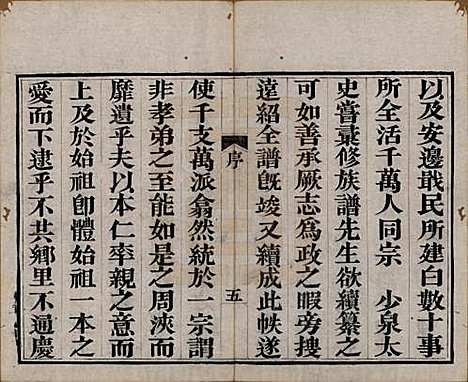 以及安邊戢民所建白數十事
所全活千萬人同宗　少泉太
史嘗彙修族譜先生欲續纂之
可如善承厥志爲政之暇旁搜
遠紹全譜旣竣又續成此帙遂
序
五
使千支萬派翕然統於一宗謂
非孝弟之至能如是之周浹而
靡遺乎夫以本仁率親之意而
上及於始祖卽體始祖一本之
愛而下逮乎不共鄉里不通慶